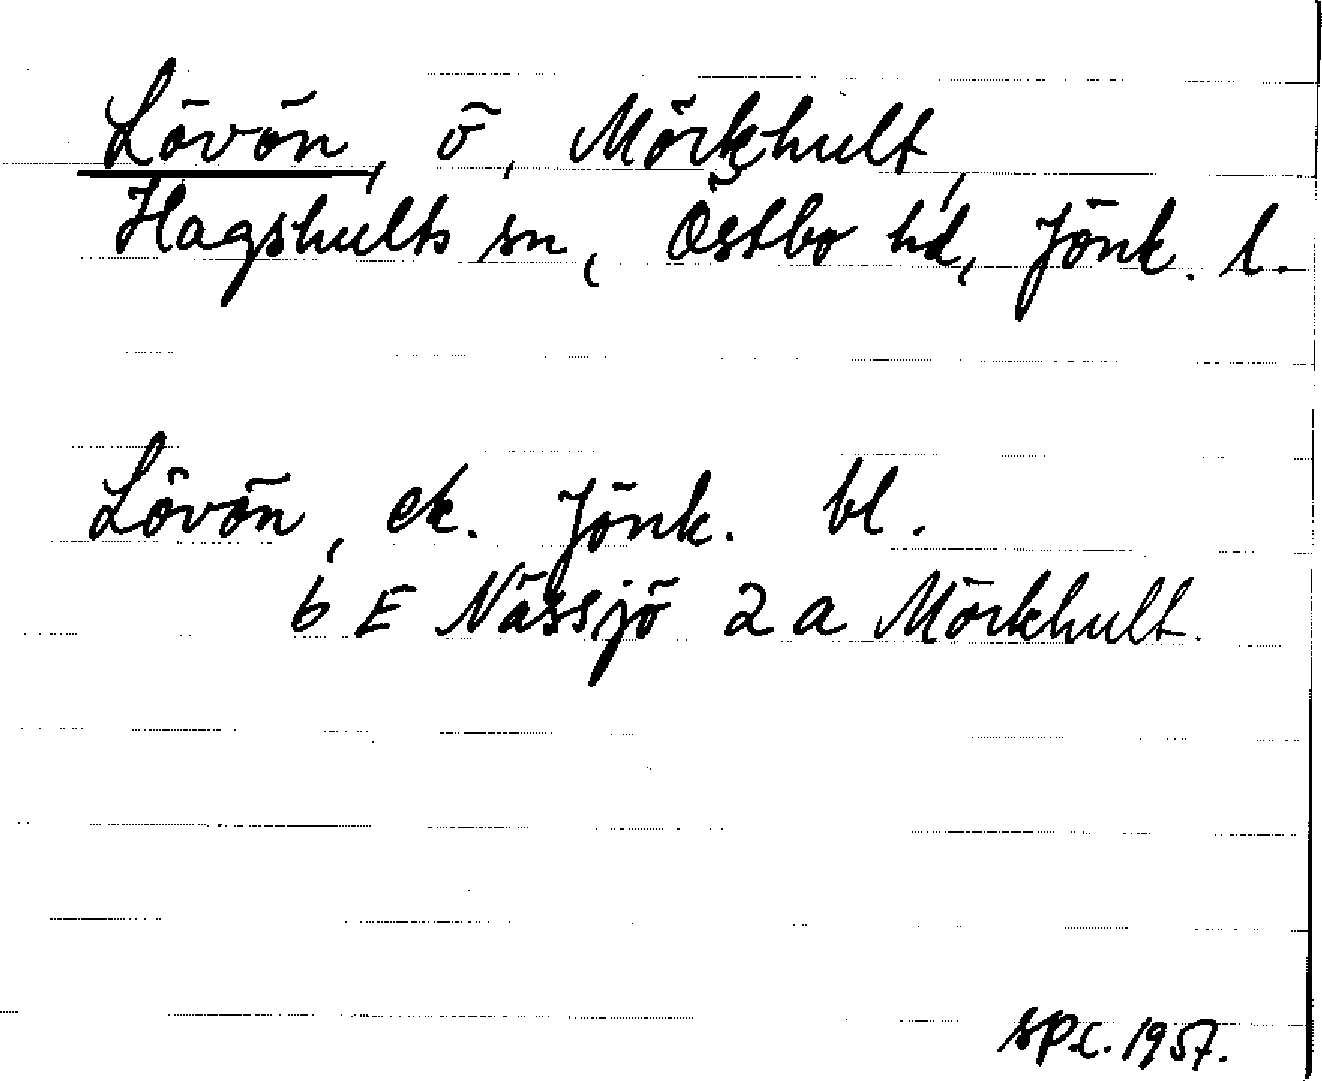 Lövön, ö, Mörkhult,
Hagshults sn, Östbo hd, Jönk. l.
Lövön, ek. Jönk. bl.
6 E Nässjö 2 a Mörkhult.
1957.